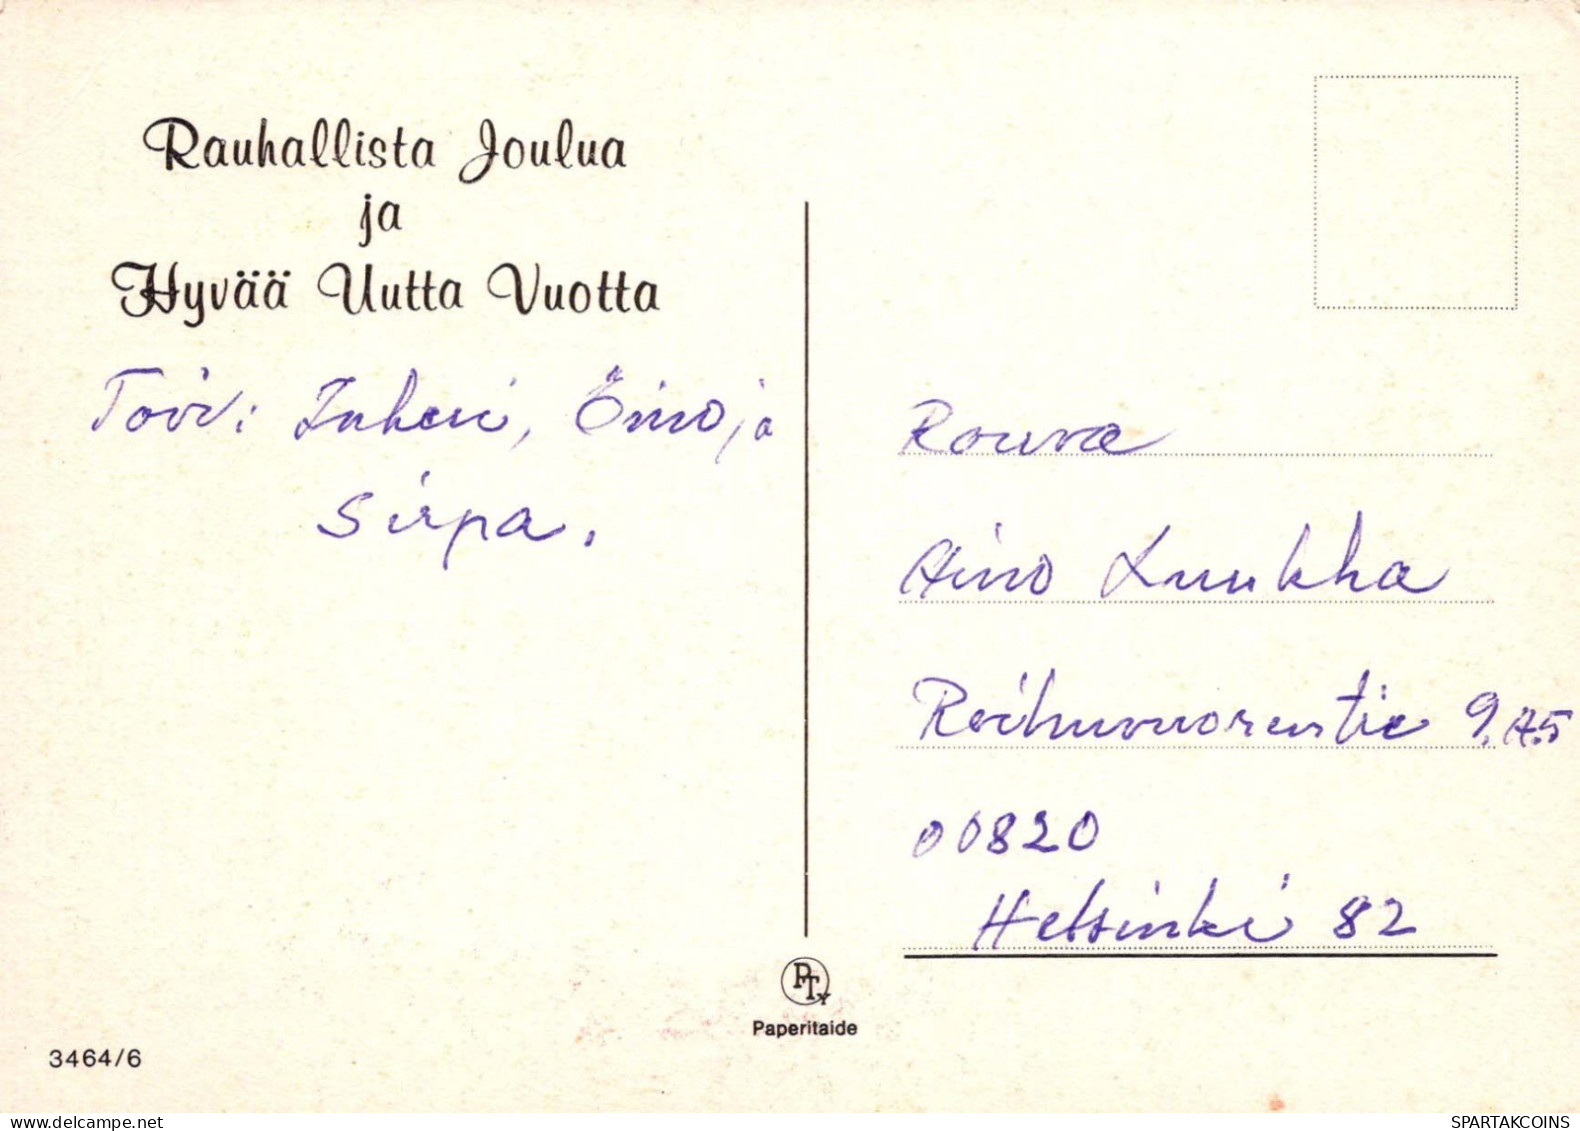 Rauhallista Joulua
ja
Hyvää Uutta Vuotta
Toiv: Inkeri, Eino ja
Sirpa.
Rouva
Aino Luukka
Reihuvuorentie 9. A5
00820
Helsinki 82
PTY
Paperitaide
3464/6
SPARTAKCOINS